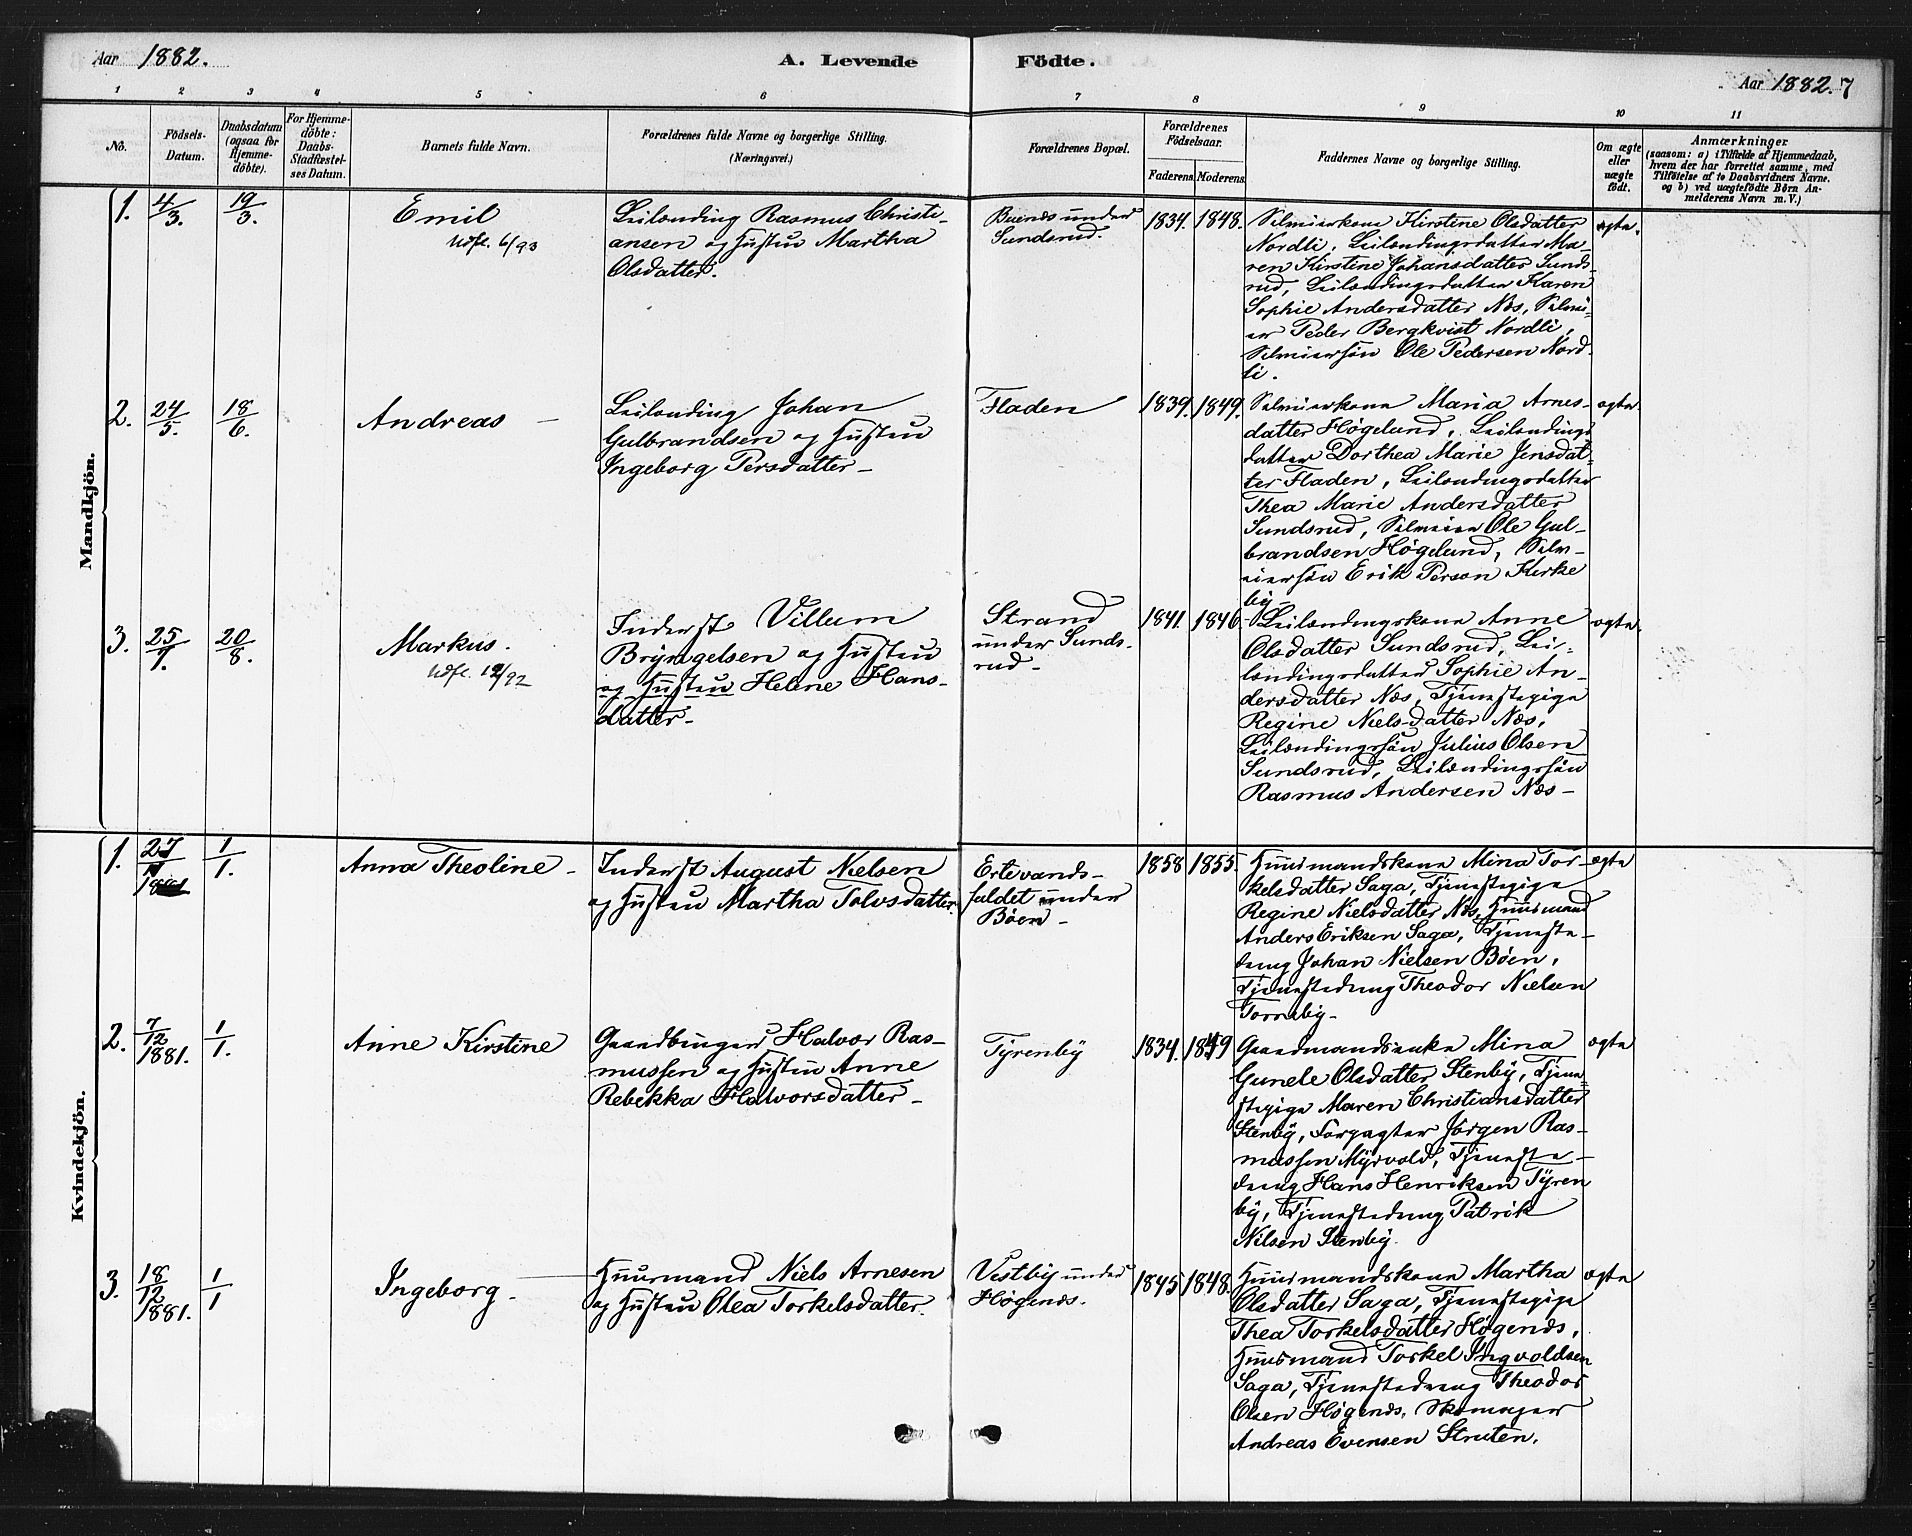 Aar 1882.
A. Levende
Födte.
Aar 1882. 7
1 2 3 4 5 6 7 8 9 10 11
No.
Födsels-
Datum.
Daabsdatum
(ogsaa for
Hjemme-
döbte).
For Hjemme-
döbte:
Daabs-
Stadfæstel-
ses Datum.
Barnets fulde Navn.
Forældrenes fulde Navne og borgerlige Stilling.
(Næringsvei.)
Forældrenes Bopæl.
Forældrenes
Födselsaar.
Faderens. Moderens.
Faddernes Navne og borgerlige Stilling.
Om ægte
eller
uægte
födt.
Anmærkninger
(saasom: a) i Tilfælde af Hjemmedaab,
hvem der har forrettet samme, med
Tilföielse af to Daabsvidners Navne.
og b) ved uægtefödte Börn An-
melderens Navn m. V.)
Mandkjön.
1. 4/3. 19/3.
Emil
Udfl. 6/93
Leilænding Rasmus Christi-
ansen og Hustru Martha
Olsdatter.
Buenes under
Sundsrud.
1834. 1848.
Selveierkone Kirstine Olsdatter
Nordli, Leilændingsdatter Ma-
ren Kirstine Johansdatter Sunds-
rud, Leilændingsdatter Karen
Sophie Andersdatter Næs, Selvei-
er Peder Bergkvist Nordli,
Selveiersön Ole Pedersen Nord-
li.
ægte.
2. 24/5. 18/6.
Andreas —
Leilænding Johan
Gulbrandsen og Hustru
Ingeborg Persdatter —
Fladen
1839. 1849.
Selveierkone Maria Arnes-
datter Høgelund, Leilændings
datter Dorthea Marie Jensdat-
ter Fladen, Leilændingsdatter
Thea Marie Andersdatter
Sundsrud, Selveier Ole Gul-
brandsen Høgelund, Selv-
eiersön Erik Person Kirke
by —
ægte.
3. 25/7. 20/8.
Markus.
Udfl. 12/92
Inderst Villum
Bryngelsen og Hustru
og Hustru Helene Hans-
datter —
Strand
under Sunds-
rud —
1841. 1846.
Leilændingskone Anne
Olsdatter Sundsrud, Lei-
lændingsdatter Sophie An-
dersdatter Næs, Tjenestepige
Regine Nielsdatter Næs,
Leilændingssön Julius Olsen
Sundsrud, Leilændingssön
Rasmus Andersen Næs —
ægte.
Kvindekjön.
1. 27/11 1881 1/1.
Anna Theoline —
Inderst August Nielsen
og Hustru Martha Tolvsdatter.
Ertevands-
faldet under
Böen —
1858 1855.
Huusmandskone Mina Tor-
kelsdatter Saga, Tjenestepige
Regine Nielsdatter Næs, Huusmand
Anders Eriksen Saga, Tjeneste-
dreng Johan Nielsen Böen,
Tjenestedreng Theodor Nielsen
Torneby —
ægte
2. 7/12 1881. 1/1.
Anne Kirstine
Gaardbruger Halvor Ras-
mussen og Hustru Anne
Rebekka Halvorsdatter —
Tyrenby
1834. 1849
Gaardmandsenke Mina
Gunele Olsdatter Stenby, Tjene-
stepige Maren Christiansdatter
Stenby, Forpagter Jörgen Ras-
mussen Myrvold, Tjeneste-
dreng Hans Henriksen Tyren
by, Tjenestedreng Patrik
Nilsen Stenby.
ægte
3. 18/12 1881. 1/1
Ingeborg —
Huusmand Niels Arnesen
og Hustru Olea Torkelsdatter.
Vestby under
Högenæs.
1845 1848.
Huusmandskone Martha
Olsdatter Saga, Tjenestepige
Thea Torkelsdatter Högenæs,
Huusmand Torkel Ingvoldsen
Saga, Tjenestedreng Theodor
Olsen Högenæs, Skomager
Andreas Evensen Struten.
ægte